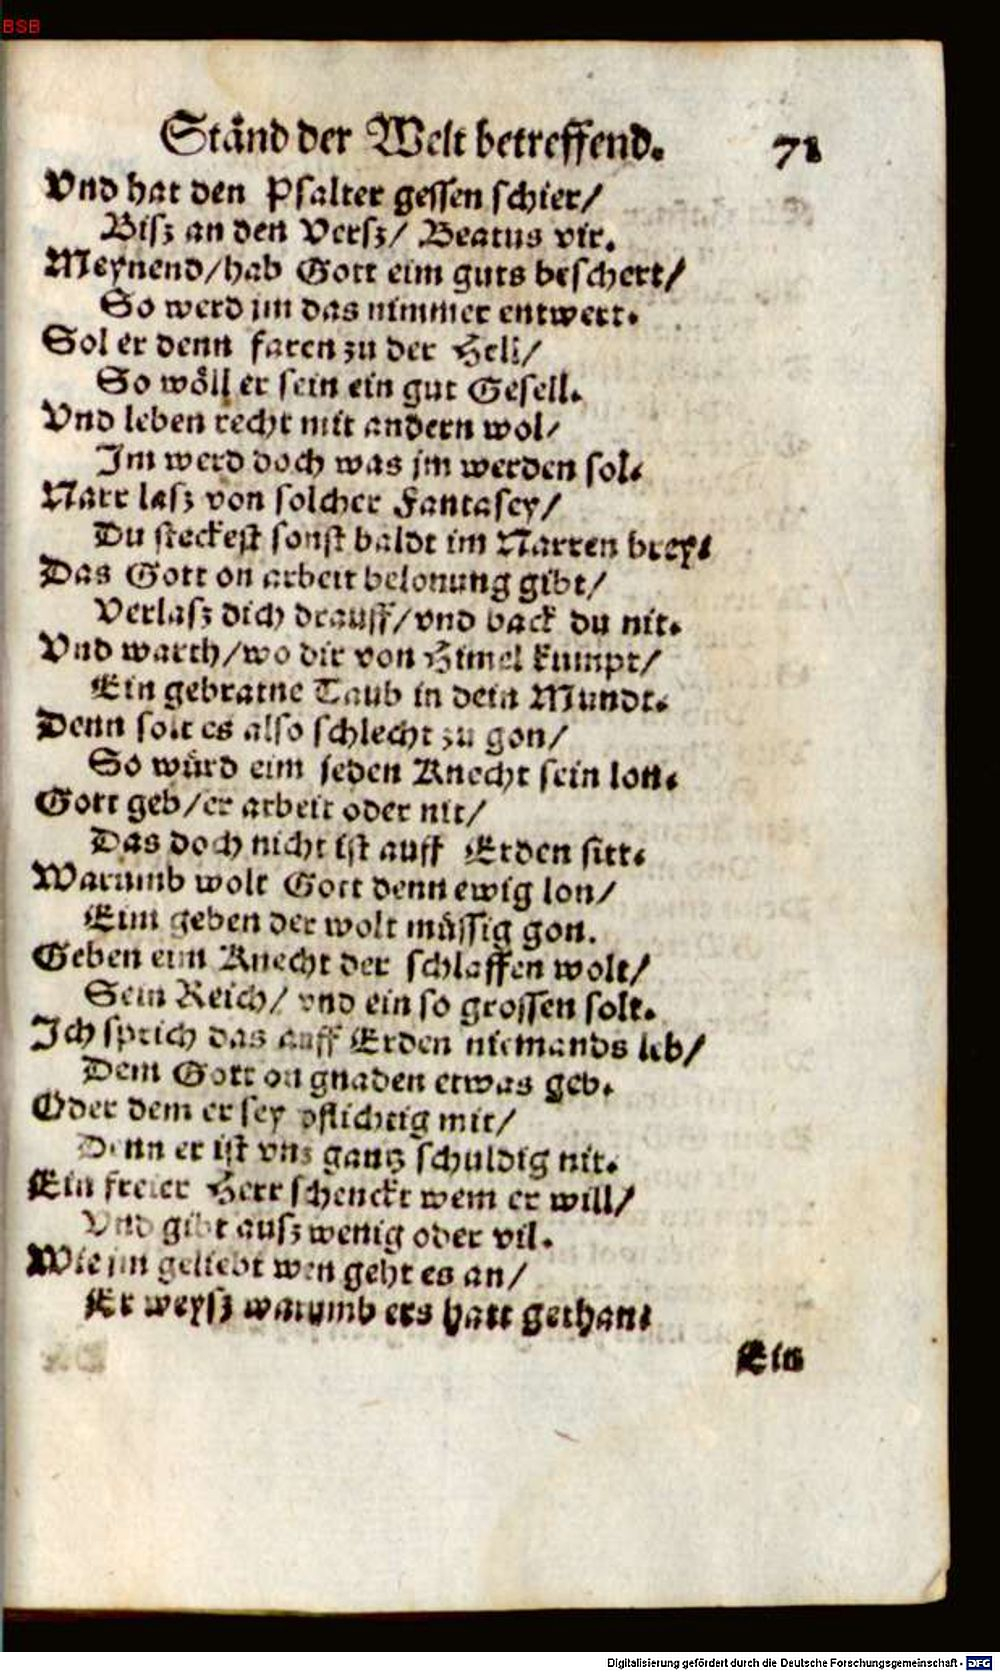 BSB
Ständ der Welt betreffend. 71
Vnd hat den Psalter gessen schier/
Bisz an den Versz/ Beatus vir.
Meynend/hab Gott eim guts beschert/
So werd im das nimmer entwert.
Sol er denn faren zu der Hell/
So wöll er sein ein gut Gesell.
Vnd leben recht mit andern wol/
Im werd doch was jm werden sol.
Narr lasz von solcher Fantasey/
Du steckest sonst baldt im Narren brey.
Das Gott on arbeit belonung gibt/
Verlasz dich drauff/vnd back du nit.
Vnd warth/wo dir von Himel kumpt/
Ein gebratne Taub in dein Mundt.
Denn solt es also schlecht zu gon/
So würd eim jeden Knecht sein lon.
Gott geb/er arbeit oder nit/
Das doch nicht ist auff Erden sitt.
Warumb wolt Gott denn ewig lon/
Eim geben der wolt müssig gon.
Geben eim Knecht der schlaffen wolt/
Sein Reich/ vnd ein so grossen solt.
Ich sprich das auff Erden niemands leb/
Dem Gott on gnaden etwas geb.
Oder dem er sey pflichtig mit/
Denn er ist vns gantz schuldig nit.
Ein freier Herr schenckt wem er will/
Vnd gibt ausz wenig oder vil.
Wie jm geliebt wen geht es an/
Er weysz warumb ers hatt gethan.
Ein
Digitalisierung gefördert durch die Deutsche Forschungsgemeinschaft - DFG